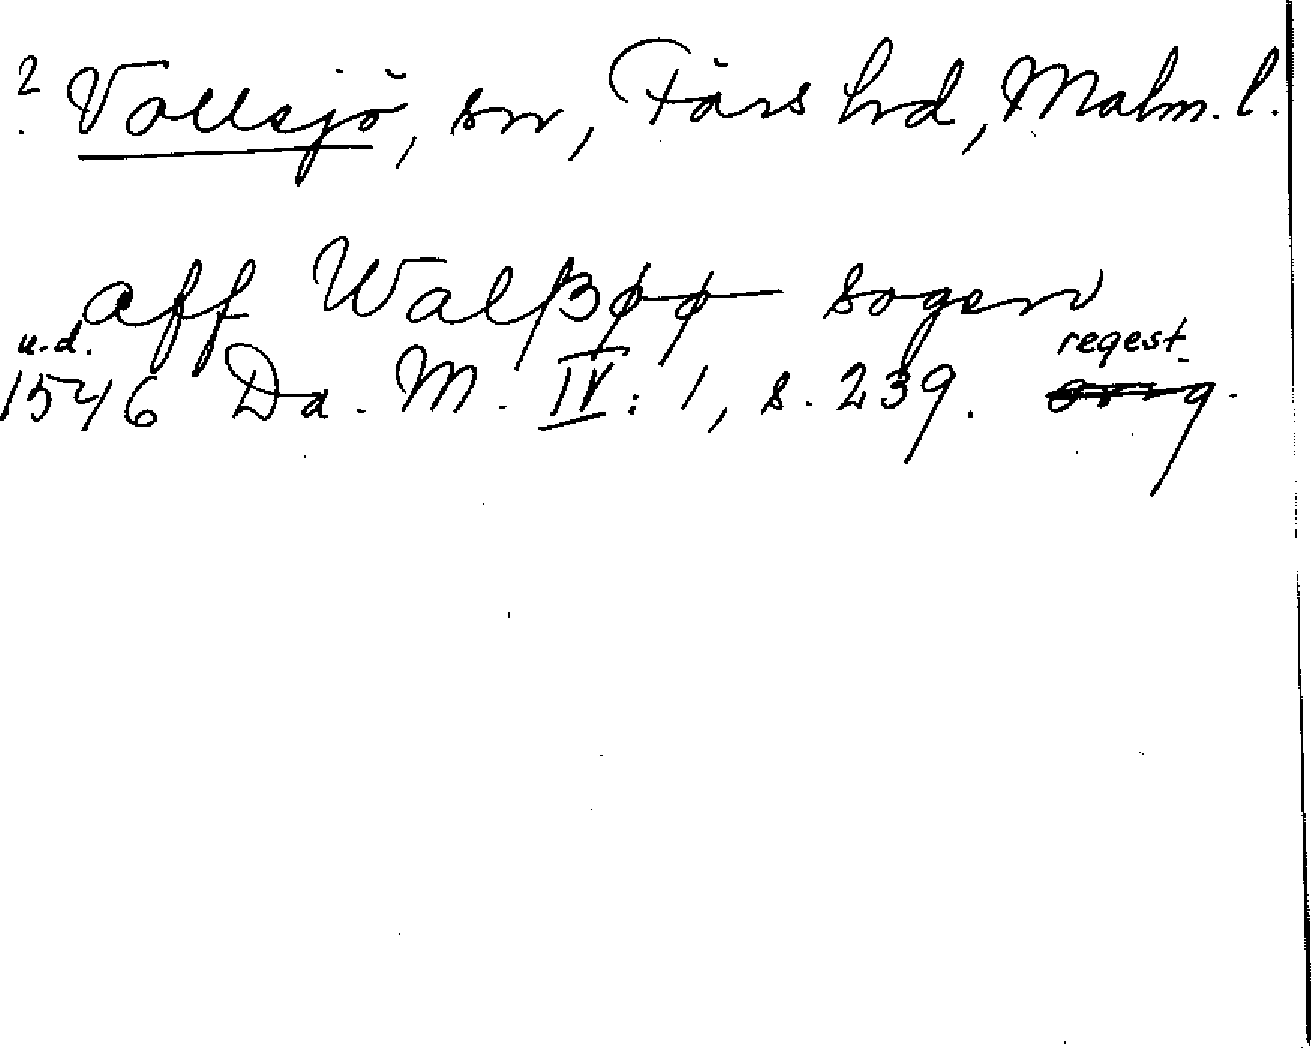 ? Vollsjö, sn, Färs hd, Malm. l.
aff Walßøø sogen
u.d. regest.
1546 Da. M. IV: 1, s. 239. orig.